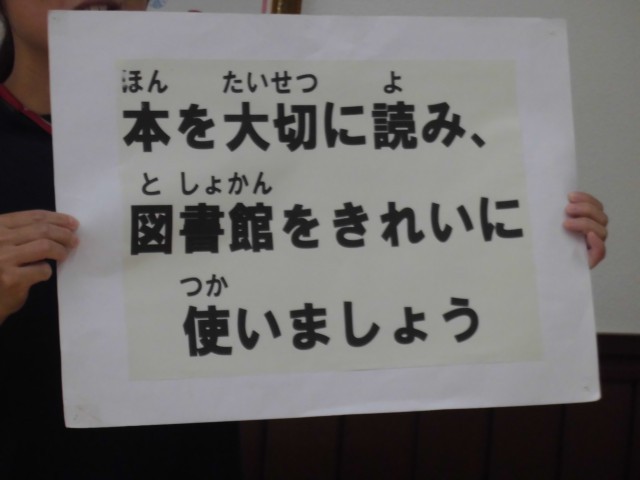 ほん たいせつ よ
本を大切に読み、
と しょかん
図書館をきれいに
つか
使いましょう